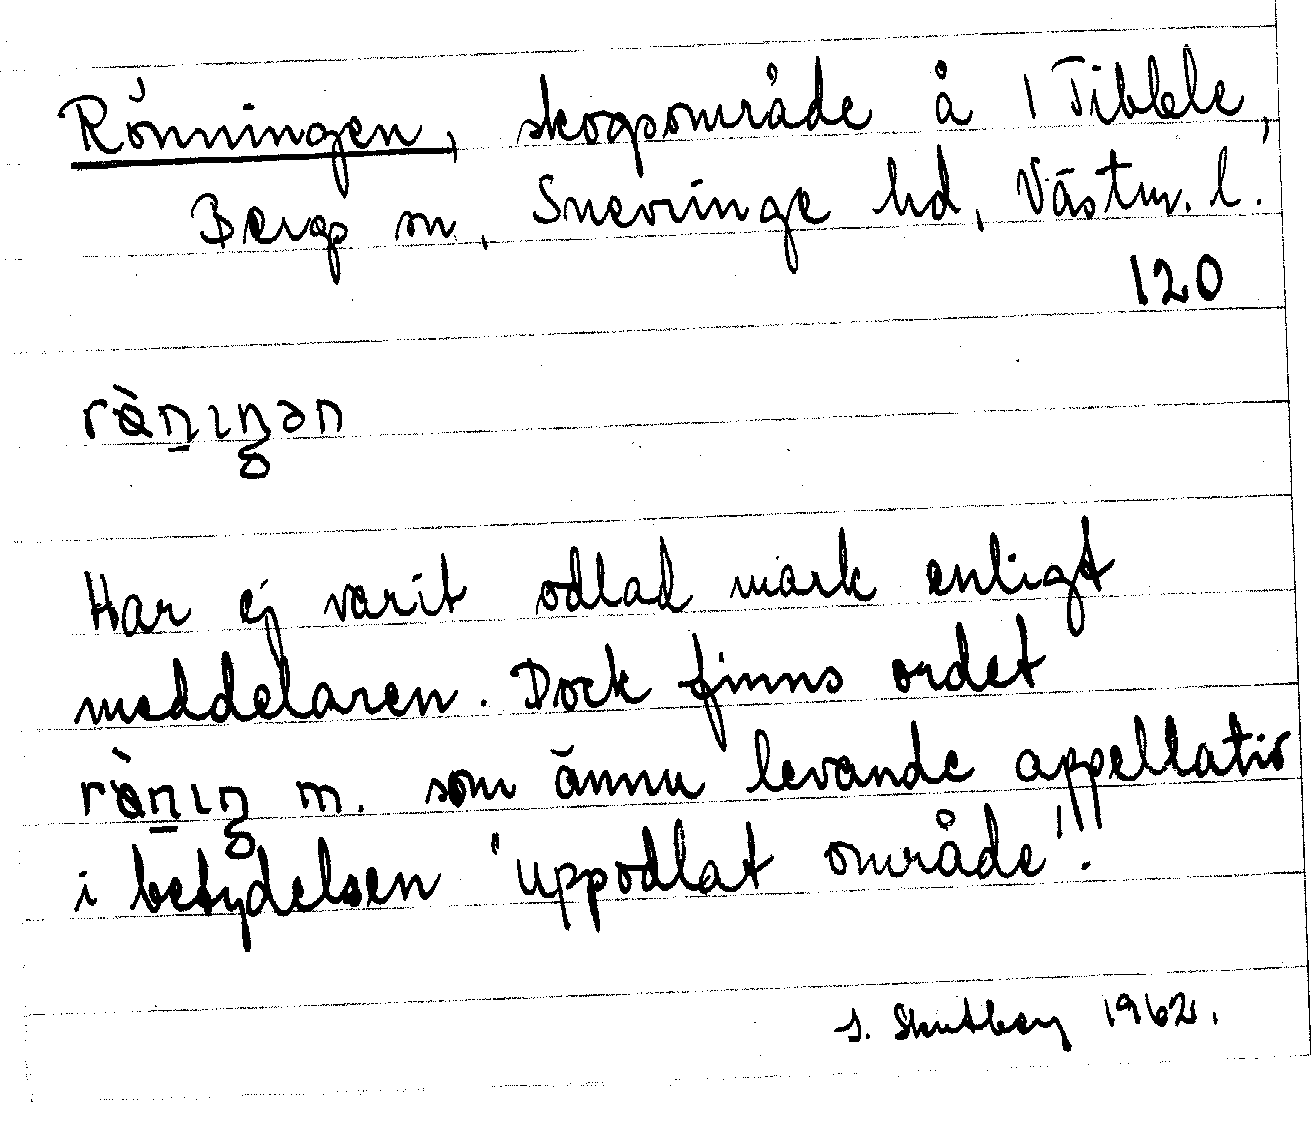 Rönningen, skogsområde å 1 Tibble,
Bergs sn, Snevringe hd, Västm. l.
120
rö̀nıŋən
Har ej varit odlad mark enligt
meddelaren. Dock finns ordet
rö̀nıŋ m. som ännu levande appellativ
i betydelsen 'uppodlat område'.
1962.